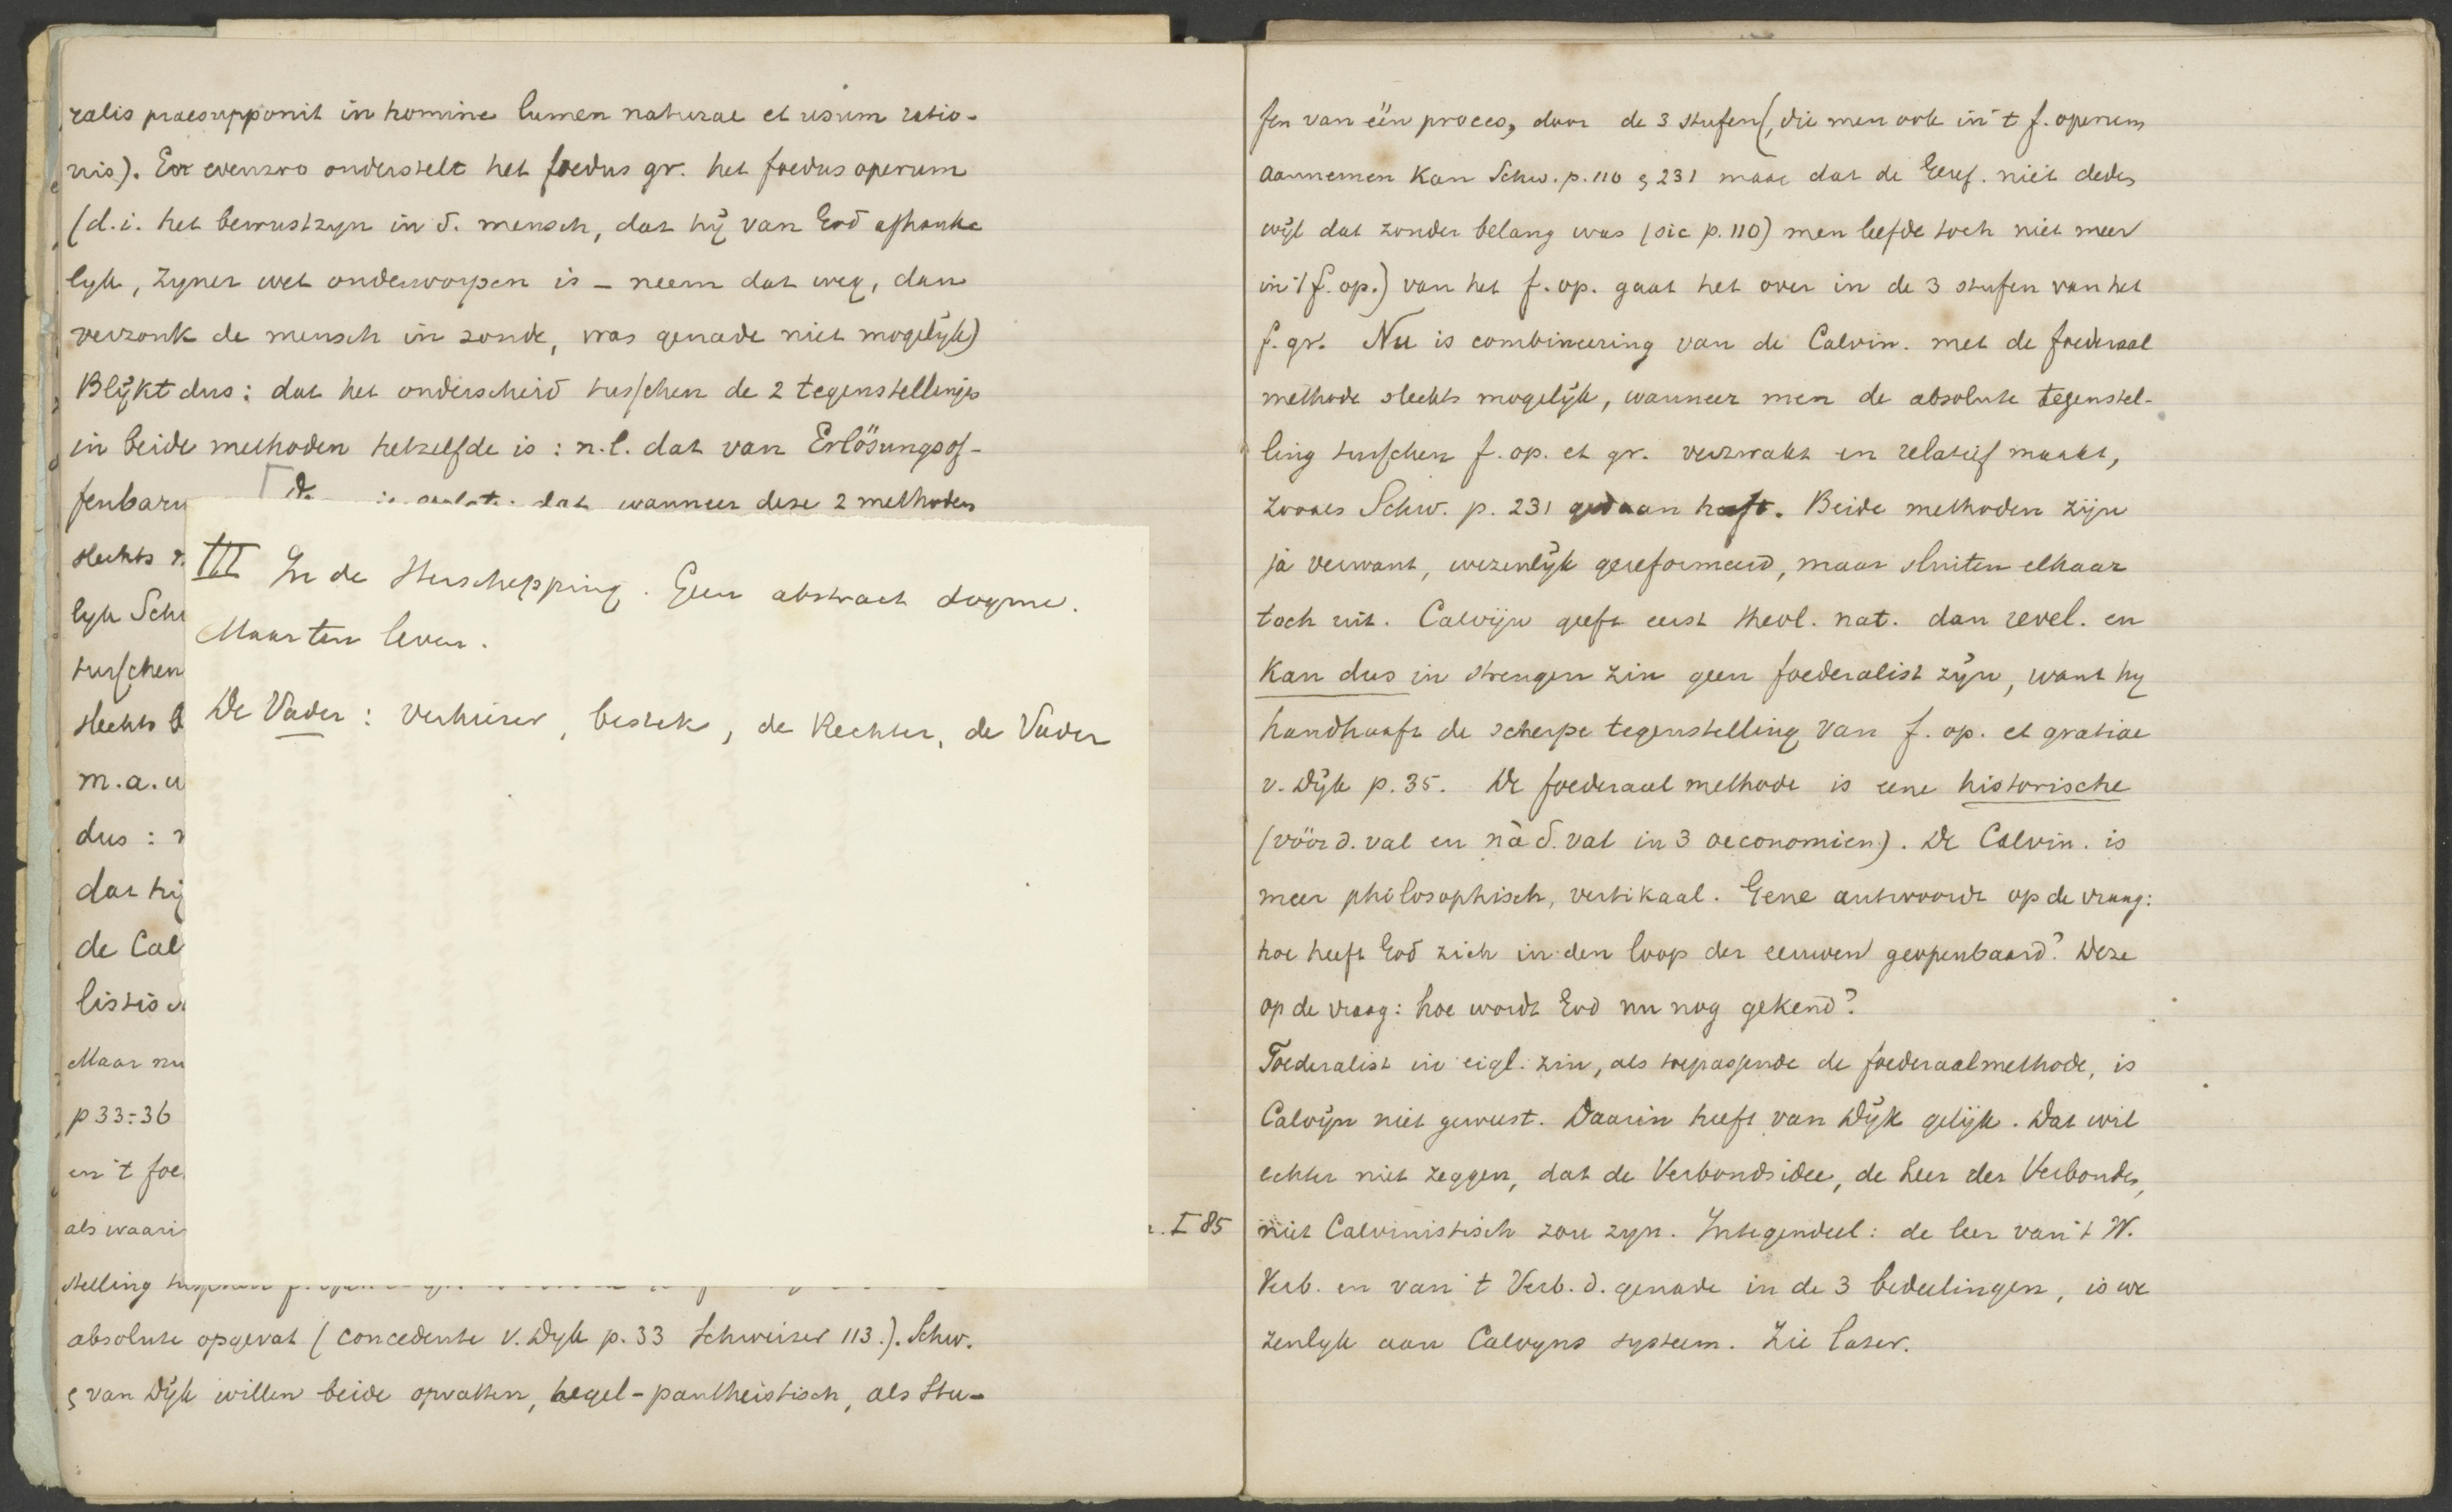 ralis praesupponit in homine lumen naturae et usum ratio-
nis). En evenzoo onderstelt het foedus gr. het foedus operum
(d.i. het bewustzyn in d. mensch, dat hÿ van God afhanke
lyk, Zyner wet onderworpen is - neem dat weg, dan
verzonk de mensch in zonde, was genade niet mogelÿk)
Blÿkt dus: dat het onderscheid tusschen de 2 tegenstellings
in beide methoden hetzelfde is: n.l. dat van Erlösungsof-
fenbaru
dat wanneer deze 2 methoden
slechts
lyk Schw
tusschen
slechts
m.a.w
dus :
dat hij
de Cal
listisch
Maar nu
p 33-36
en 't foe
als waarin
stelling
absolute opgevat (concedente v. Dyk p. 33 Schweizer 113.). Schw.
& van Dÿk willen beide opvatten, hegel-pantheistisch, als Stu-
III In de Herschepping. Geen abstract dogme.
Maar ten leven.
De Vader: Verkiezer, bestek, de Rechter, de Vader
I 85
fen van één proces, door de 3 stufen (, die men ook in 't f. operum
aannemen kan Schw. p. 110 & 231 maar dat de Geref. niet deden
wÿl dat zonder belang was (sic p. 110) men leefde toch niet meer
in 't f. op.) van het f. op. gaat het over in de 3 stufen van het
f. gr. Nu is combineering van de Calvin. met de foederaal
methode slechts mogelÿk, wanneer men de absolute tegenstel-
ling tusschen f. op. et gr. verzwakt en relatief maakt,
zooals Schw. p. 231 gedaan heeft. Beide methoden zijn
ja verwant, wezenlÿk gereformeerd, maar sluiten elkaar
toch uit. Calvijn geeft eerst theol. nat. dan revel. en
kan dus in strengen zin geen foederalist zÿn, want hy
handhaaft de scherpe tegenstelling van f. op. et gratiae
v. Dÿk p. 35. De foederaal methode is eene historische
(vóór d. val en ná d. val in 3 oeconomien). De Calvin. is
meer philosophisch, vertikaal. Gene antwoordt op de vraag:
hoe heeft God zich in den loop der eeuwen geopenbaard? Deze
op de vraag: hoe wordt God nu nog gekend?
Foederalist in eigl. zin, als toepassende de foederaalmethode, is
Calvÿn niet geweest. Daarin heeft van Dÿk gelÿk. Dat wil
echter niet zeggen, dat de Verbondsidee, de Leer der Verbonden,
niet Calvinistisch zou zyn. Integendeel: de leer van 't W.
Verb. en van 't Verb. d. genade in de 3 bedeelingen, is we
zenlyk aan Calvyns systeem. Zie later.